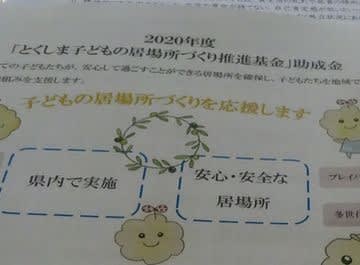 2020年度
「とくしま子どもの居場所づくり推進基金」助成金
ての子どもたちが、安心して過ごすことができる居場所を確保し、子どもたちを地域で
組みを支援します。
子どもの居場所づくりを応援します
県内で実施
安心・安全な
居場所
プレイパ
多世代